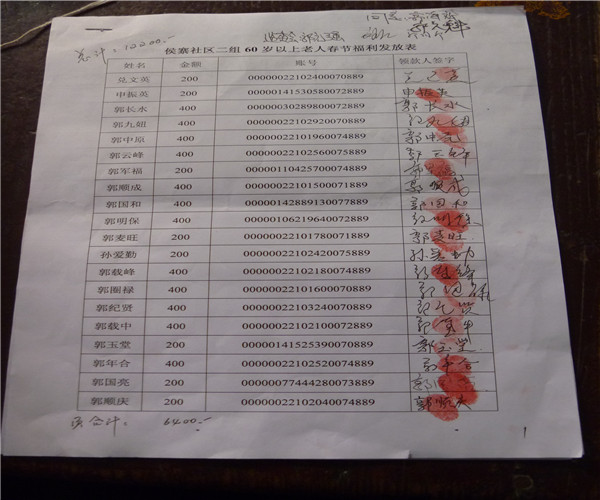 总计：12200.—
侯寨社区二组60岁以上老人春节福利发放表
姓名 金额 账号 领款人签字
兑文英 200 00000022102400070889
申振英 200 00000141530580072889 申振英
郭长水 400 00000030289800072889 郭长水
郭九妞 400 00000022102920070889 郭九妞
郭中原 400 00000022101960074889 郭中原
郭云峰 400 00000022102560075889 郭云峰
郭军福 200 00000110425700074889
郭顺成 400 00000022101500071889 郭顺成
郭国和 400 00000142889130077889 郭国和
郭明保 400 00000106219640072889 郭明保
郭麦旺 200 00000022101780071889 郭麦旺
孙爱勤 200 00000022102420075889 孙爱勤
郭载峰 400 00000022102180074889 郭载峰
郭圈禄 400 00000022101600070889 郭圈禄
郭纪贤 400 00000022103240070889 郭纪贤
郭载中 400 00000022102100072889
郭玉堂 200 00000141525390070889 郭玉堂
郭年合 400 00000022102520074889
郭国亮 200 00000077444280073889
郭顺庆 200 00000022102040074889 郭顺庆
页合计： 6400.—
1